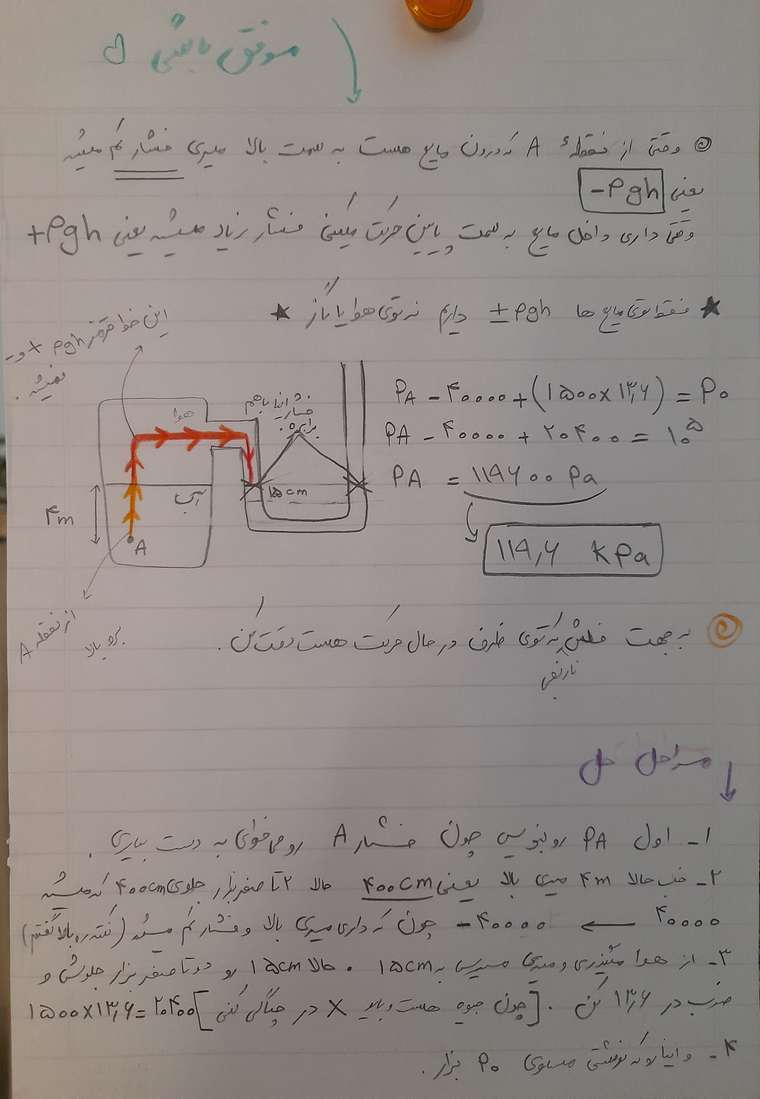 موفق باشی
وقتی از نقطهٔ A که درون مایع هست به سمت بالا میری فشار کم میشه
یعنی -ρgh
وقتی داری داخل مایع به سمت پایین حرکت میکنی فشار زیاد میشه یعنی +ρgh
★ فقط توی مایع ها ±ρgh داریم نه توی هوا یا گاز ★
این خط قرمز ρgh + و -
نمیشه.
هوا
فشار اینا با هم
برابره.
آب
۴m
A
۱۵cm
از نقطه A
برو بالا
PA - ۴۰۰۰۰ + (۱۵۰۰×۱۳٫۶) = P۰
PA - ۴۰۰۰۰ + ۲۰۴۰۰ = ۱۰⁵
PA = ۱۱۹۶۰۰ Pa
۱۱۹٫۶ kPa
به جهت فلش که توی ظرف در حال حرکت هست دقت کن.
نارنجی
مراحل حل
۱- اول PA رو بنویس چون فشار A رو می خوای به دست بیاری.
۲- خب حالا ۴m میری بالا یعنی ۴۰۰cm حالا ۲ تا صفر بزار جلوی ۴۰۰cm که میشه
۴۰۰۰۰ ← ۴۰۰۰۰- چون که داری میری بالا و فشار کم میشه (نکته رو بالا گفتم)
۳- از هوا میگذری و میری میرسی به ۱۵cm. حالا ۱۵cm رو دو تا صفر بزار جلوش و
ضرب در ۱۳٫۶ کن. [چون جیوه هست و باید × در چگالی کنی] ۱۵۰۰×۱۳٫۶=۲۰۴۰۰
۴- و اینا رو که نوشتی مساوی P۰ بزار.